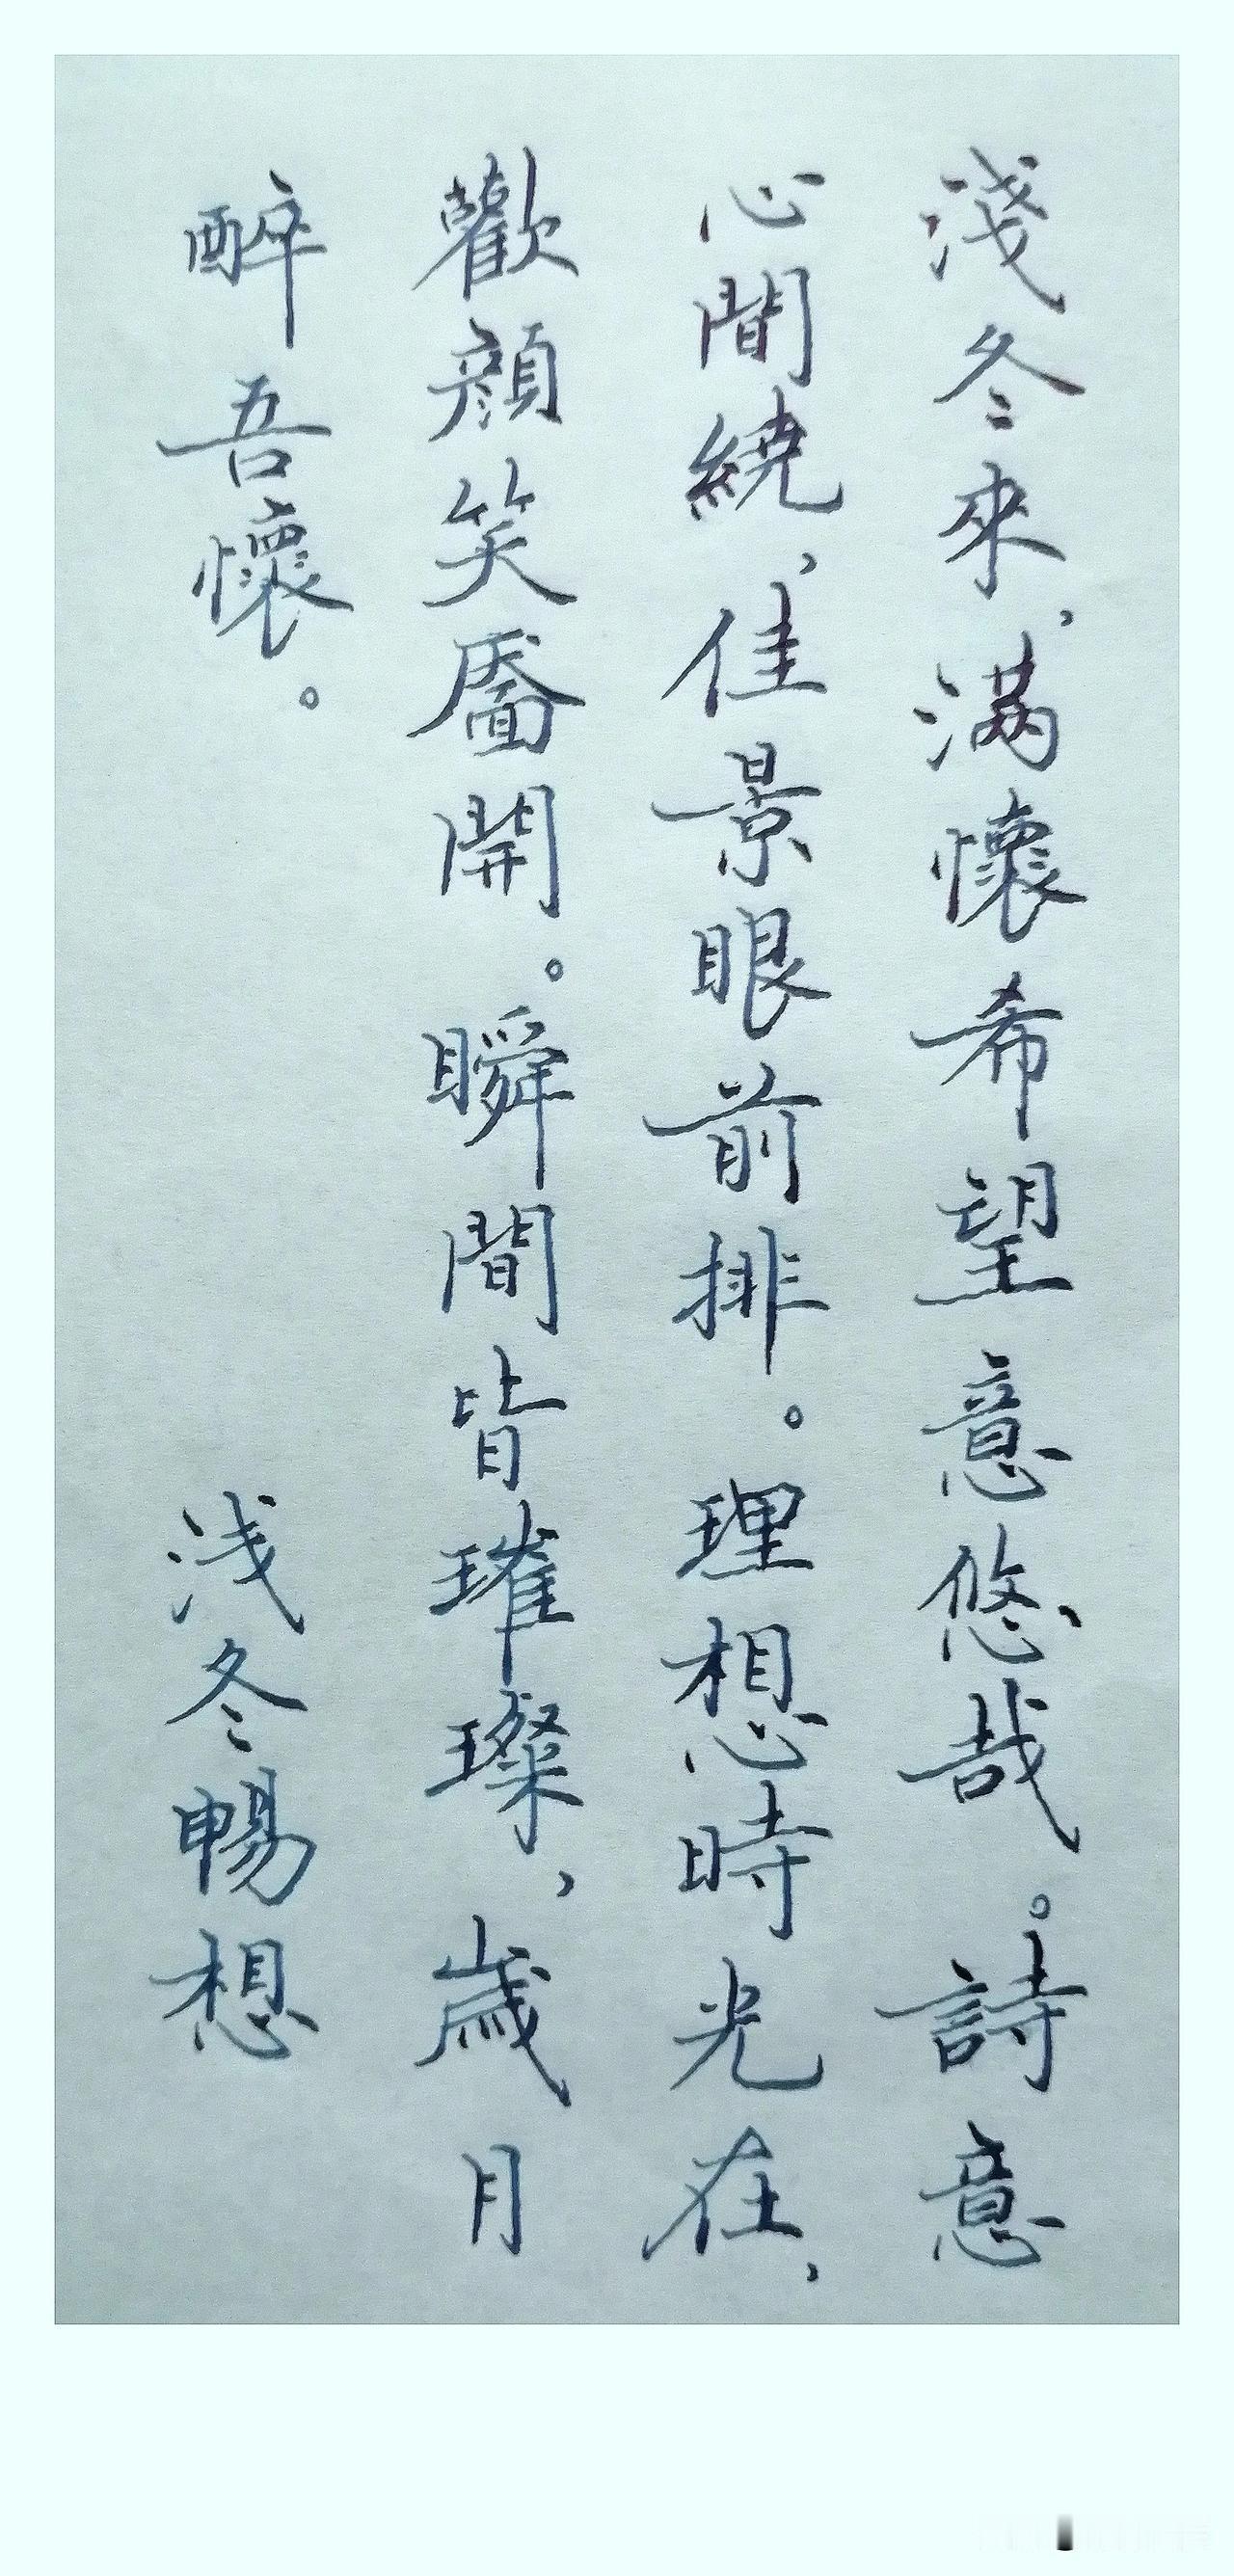 淺冬來，滿懷希望意悠哉。詩意
心間繞，佳景眼前排。理想時光在，
歡顏笑靨開。瞬間皆璀璨，歲月
醉吾懷。
浅冬暢想